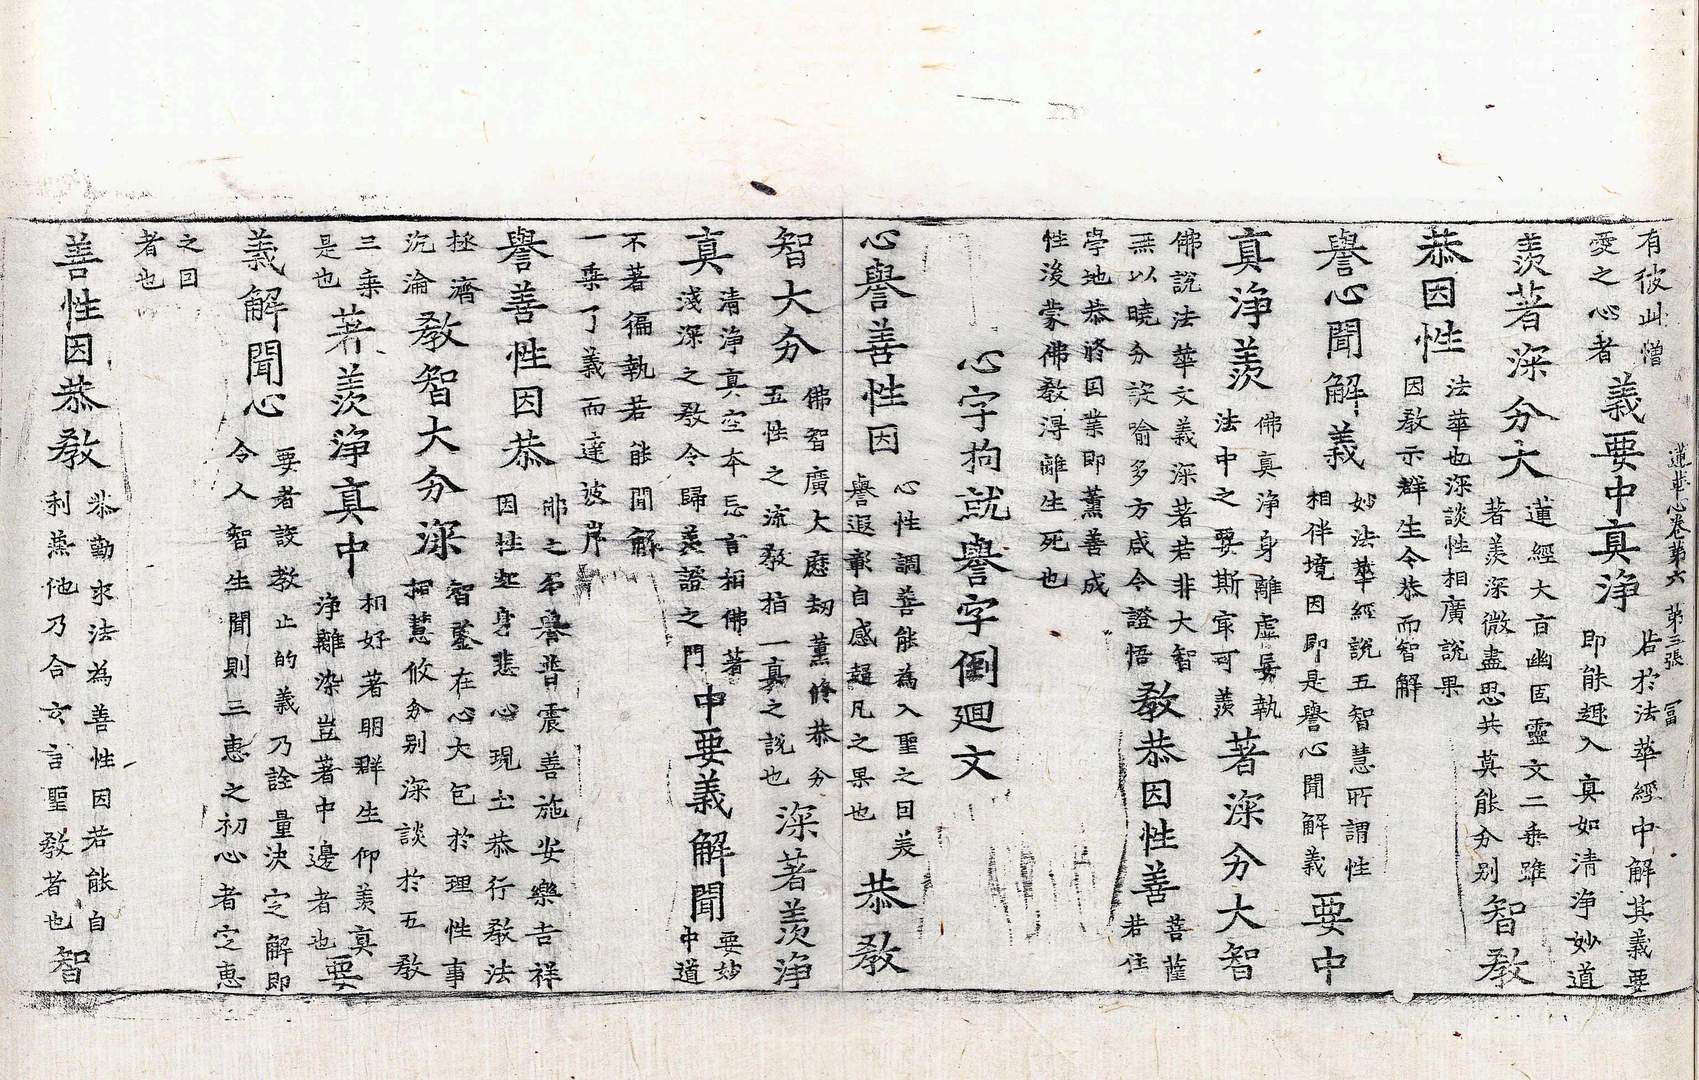 蓮華心卷第六 第三張 冨
有彼此憎
愛之心者
義要中真淨
若於法華經中解其義要
即能趣入真如清淨妙道
羨著深分大
蓮經大㫖幽靈文二乘雖
著羨深微盡思共莫能分别
智教
恭因性
法華也深談性相廣說果
因教示群生令恭而智解
譽心聞解義
妙法華經說五智慧所謂性
相伴境因即是譽心聞解義
要中
真淨羨
佛真淨身離虛妄執
法中之要斯寂可羨
著深分大智
佛說法華文義深著若非大智
無以曉分設喻多方咸令證悟
教恭因性善
菩薩
若住
學地恭修因業即薰善成
性後蒙佛教淂離生死也
心字拘就譽字倒廻文
心譽善性因
心性調善能為入聖之因羨
譽遐彰自感超凡之果也
恭教
智大分
佛智廣大歷劫薰修恭分
五性之流教指一真之說也
深著羨淨
真
清淨真空本忘言相佛著
淺深之教令歸羨證之門
中要義解聞
要妙
中道
不著徧執若能聞解
一乘了義而達彼岸
譽善性因恭
佛之名譽普震善施安樂吉祥
因性起身悲心現土恭行教法
拯濟
沉淪
教智大分深
智鑒在心大包於理性事
相慧攸分别深談於五教
三乘
是也
著羨淨真中
相好著明群生仰羨真
淨離染豈著中邊者也
要
義解聞心
要者設教止的義乃詮量決定解即
令人智生聞則三惠之初心者定惠
之因
者也
善性因恭教
恭勤求法為善性因若能自
利兼他乃合玄言聖教者也
智